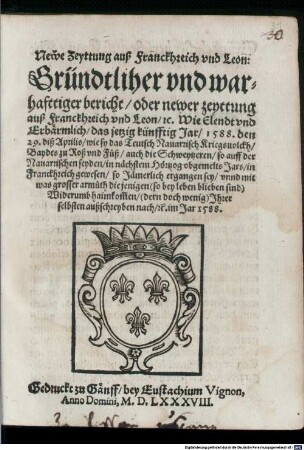 30
Newe Zeyttung auß Franckhreich vnd Leon:
Gründtliher vnd war-
hafftiger bericht / oder newer zeyttung
auß Franckhreich vnd Leon / ꝛc. Wie Elendt vnd
Erbärmlich / das jetzig künfftig Jar / 1588. den
29. diß Aprilis / wie sy das Teutsch Nauarisch Kriegsuolckh /
Baydes zu Roß vnd Füß / auch die Schweytzeren / so auff der
Nauarischen seyden / in nächsten Hörtzog obgemelts Jars / in
Franckhreich gewesen / so Jämerlich ergangen sey / vnnd mit
was grosser armüth die jenigen (so bey leben blieben sind)
Widerumb haimkoffen / (dern doch wenig) Ihrer
selbsten außschreyben nach / ꝛc. im Jar 1588.
Gedruckt zu Gänff / bey Eustachium Vignon,
Anno Domini, M. D. LXXXVIII.